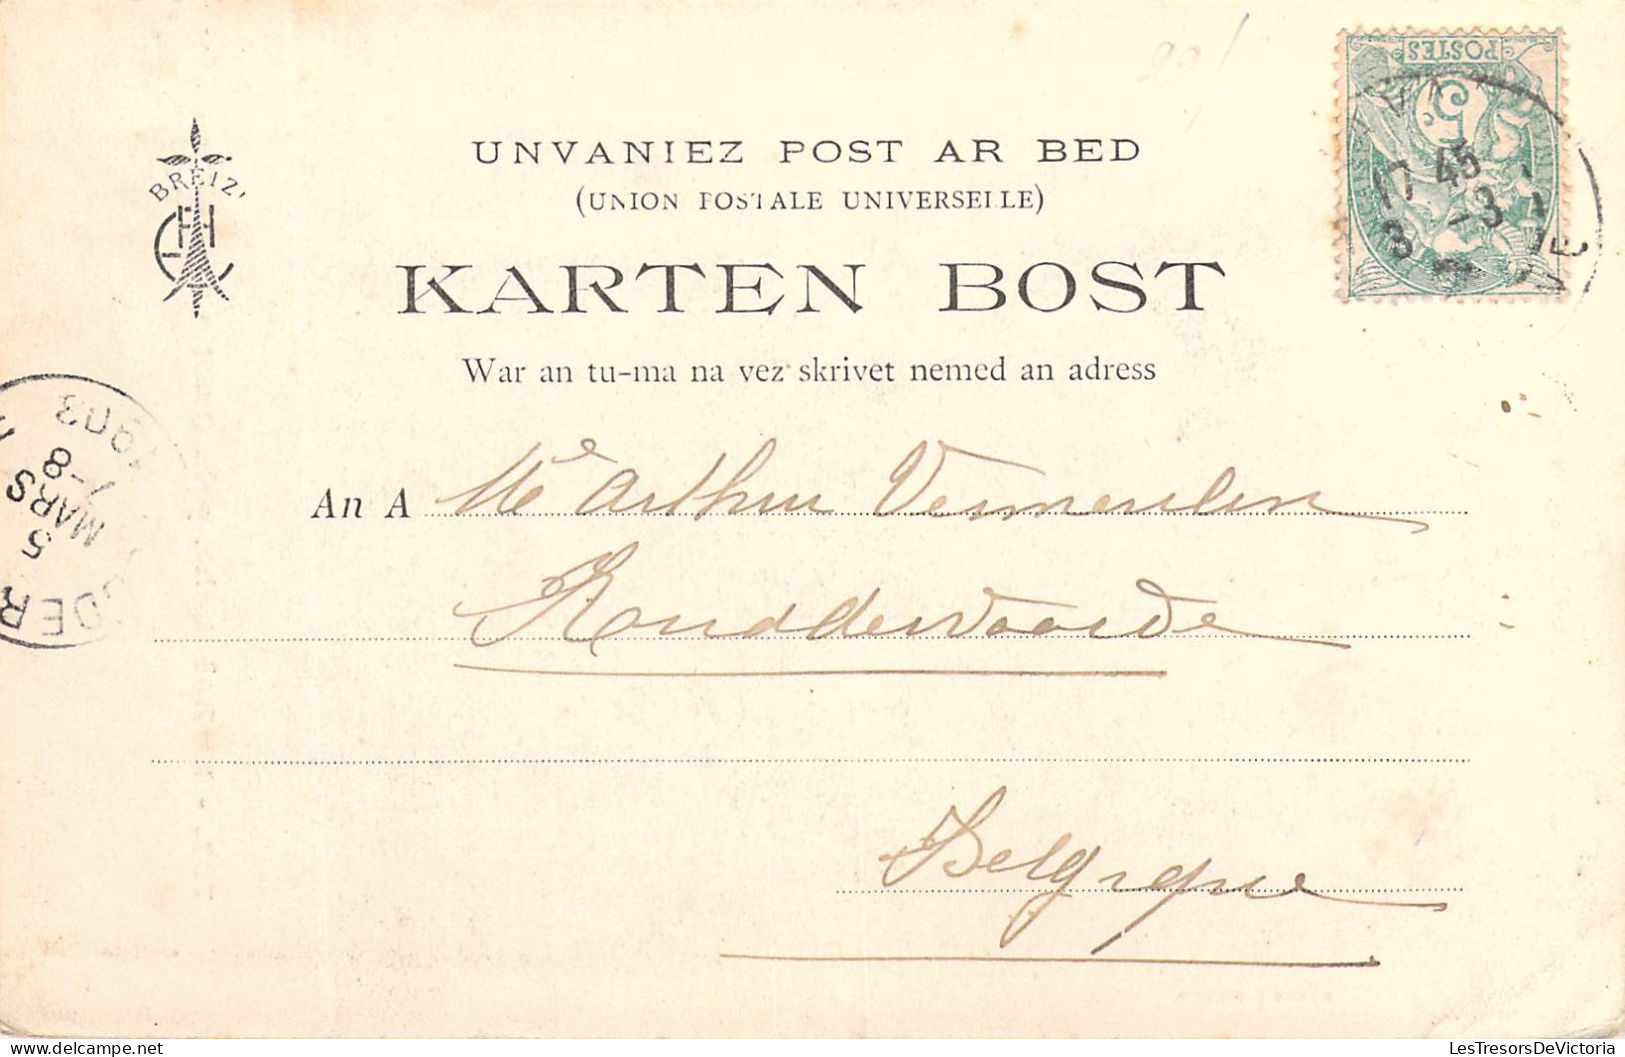 BREIZ'
UNVANIEZ POST AR BED
(UNION POSTALE UNIVERSELLE)
KARTEN BOST
War an tu-ma na vez skrivet nemed an adress
POSTES
5
17 45
3 -3
1903
7-8
MARS
5
DER
An A Arthur Vermeulen
Belgique
LesTresorsDeVictoria